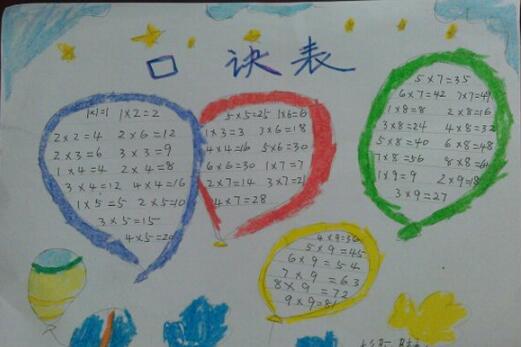 口诀表
1×1=1 1×2=2
2×2=4 2×6=12
2×3=6 3×3=9
1×4=4 2×4=8
3×4=12 4×4=16
1×5=5 2×5=10
3×5=15
4×5=20
5×5=25 1×6=6
1×3=3 3×6=18
4×4=16 5×6=30
6×6=30 1×7=7
2×7=14 3×7=21
4×7=28
5×7=35
6×7=42 7×7=49
1×8=8 2×8=16
3×8=24 4×8=32
5×8=40 6×8=48
7×8=56 8×8=64
1×9=9 2×9=18
3×9=27
4×9=36
5×9=45
6×9=54
7×9=63
8×9=72
9×9=81